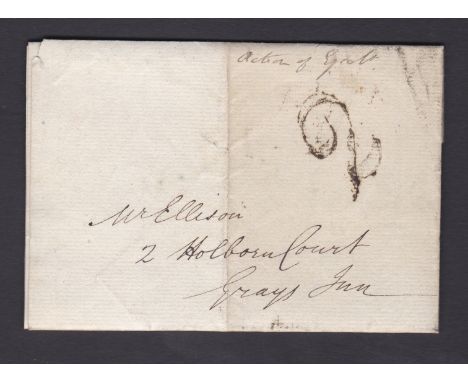 Action of Eject.t
Mr Ellison
2 Holborn Court
Grays Inn